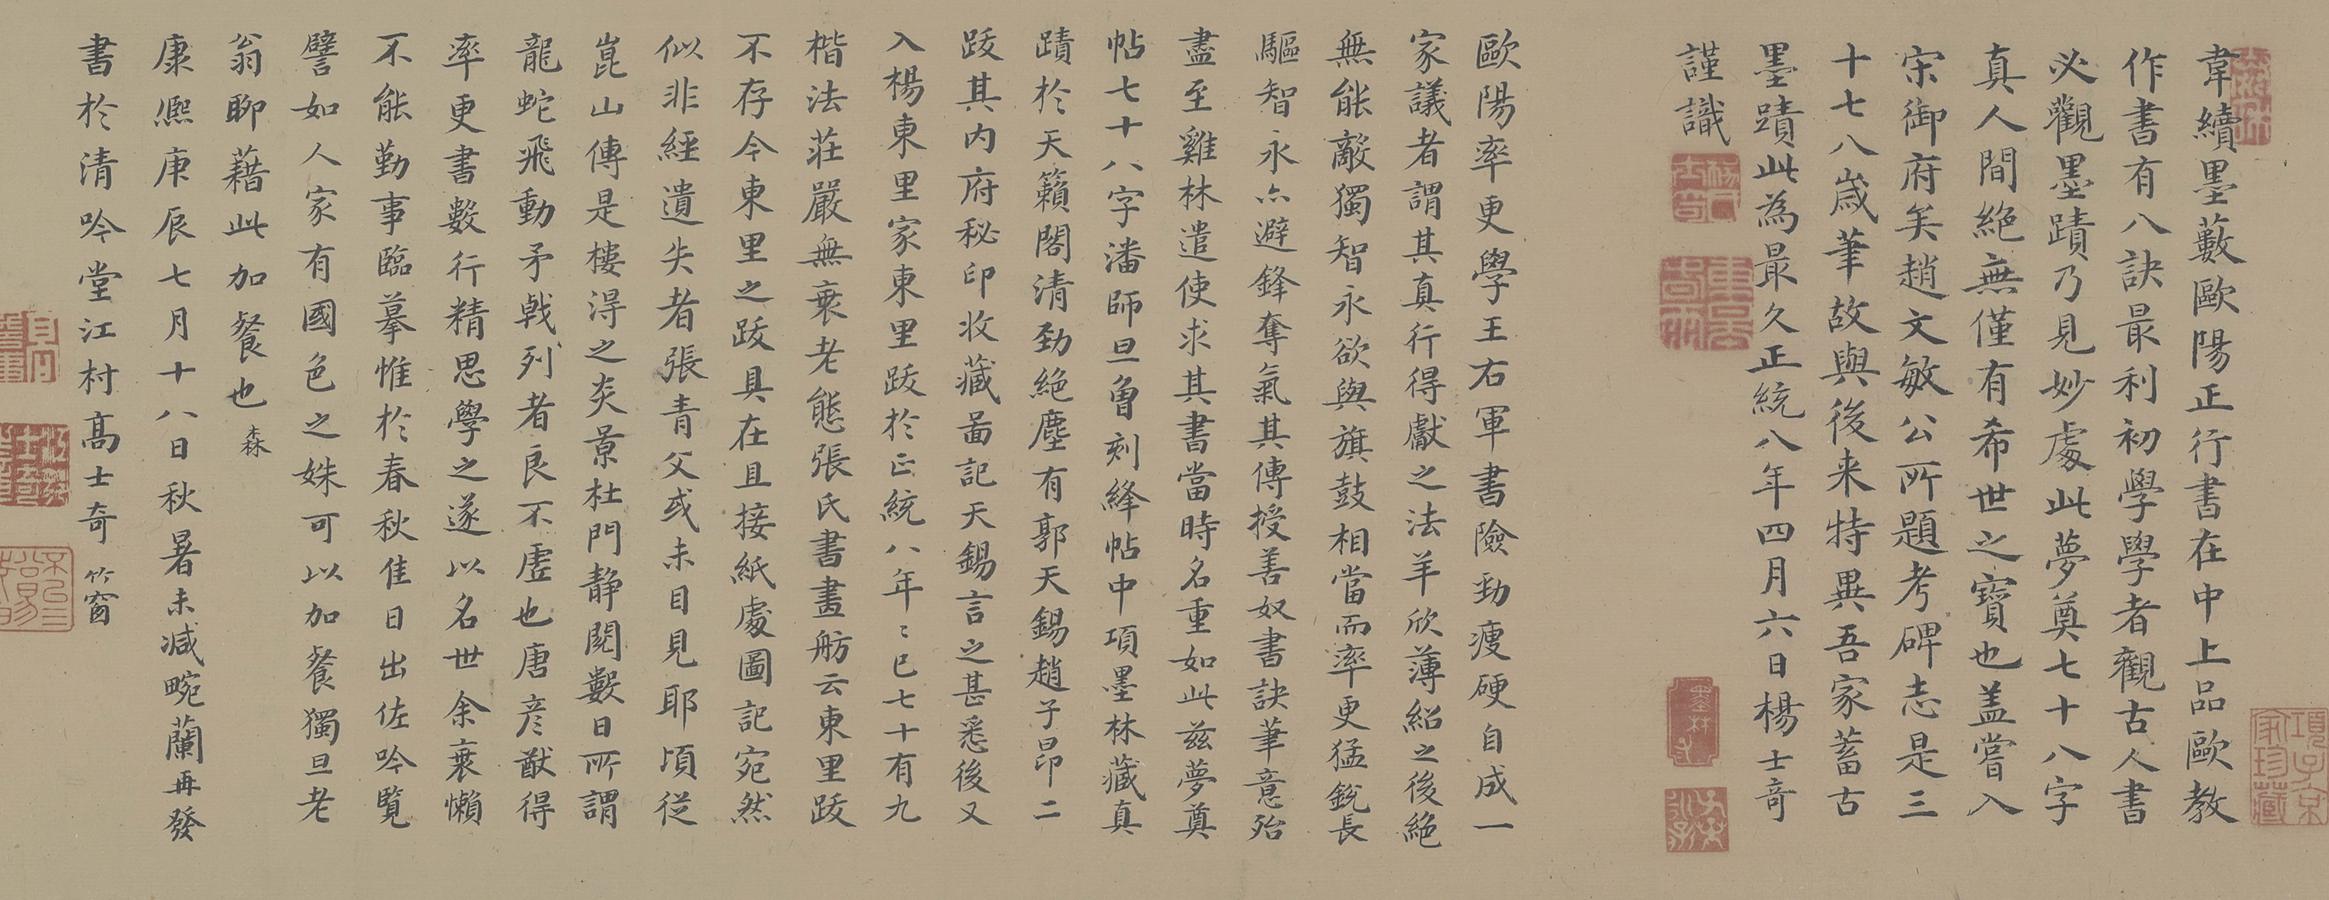 韋續墨藪歐陽正行書在中上品歐教
作書有八訣最利初學學者觀古人書
必觀墨蹟乃見妙處此夢奠七十八字
真人間絕無僅有希世之寶也盖嘗入
宋御府矣趙文敏公所題考碑志是三
十七八歲筆故與後来特異吾家蓄古
墨蹟此為最久正統八年四月六日楊士奇
謹識
歐陽率更學王右軍書險勁瘦硬自成一
家議者謂其真行得獻之法羊欣薄紹之後絕
無能敵獨智永欲與旗鼓相當而率更猛銳長
驅智永亦避鋒奪氣其傳授善奴書訣筆意殆
盡至雞林遣使求其書當時名重如此茲夢奠
帖七十八字潘師旦曾刻絳帖中項墨林藏真
蹟於天籟閣清勁絕塵有郭天錫趙子昂二
跋其内府秘印收藏啚記天錫言之甚悉後又
入楊東里家東里跋於正統八年〻已七十有九
楷法莊嚴無衰老態張氏書畫舫云東里跋
不存今東里之跋具在且接紙處圖記宛然
似非經遺失者張青父或未目見耶頃從
崑山傳是樓得之炎景杜門静閱數日所謂
龍蛇飛動矛戟列者良不虛也唐彥猷得
率更書數行精思學之遂以名世余衰懶
不能勤事臨摹惟於春秋佳日出佐吟覽
譬如人家有國色之姝可以加餐獨旦老
翁聊藉此加餐也 森
康熙庚辰七月十八日秋暑未减畹蘭再發
書於清吟堂江村高士奇 竹窗